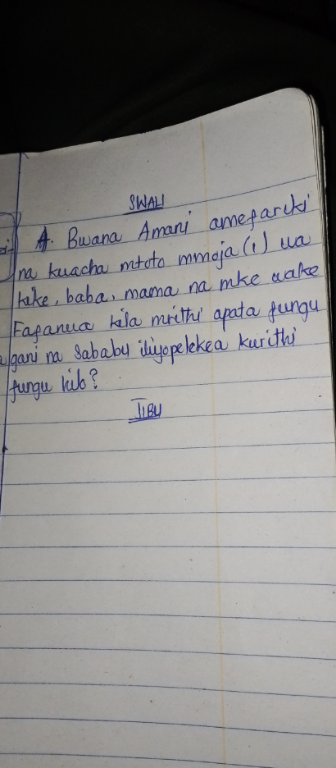 SWALI
A. Bwana Amani amefariki
na kuacha mtoto mmoja (1) wa
kike, baba, mama na mke wake
Fafanua kila mrithi apata fungu
gani na Sababu iliyopelekea kurithi
fungu hilo?
JIBU